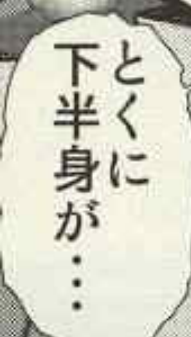 とくに
下半身が・・・